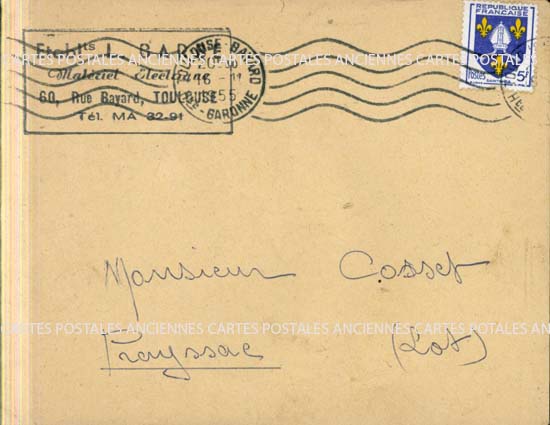 Etablts J. BAR
Matériel Electrique
60, Rue Bayard, TOULOUSE
Tél. MA 32-91
TOULOUSE BAYARD
16 -
1955
HTE-GARONNE
REPUBLIQUE
FRANCAISE
5F
CARTES POSTALES ANCIENNES CARTES POSTALES ANCIENNES CARTES POSTALES
Monsieur Cosset
CARTES POSTALES ANCIENNES CARTES POSTALES ANCIENNES CARTES POSTALES
Prayssac (Lot)